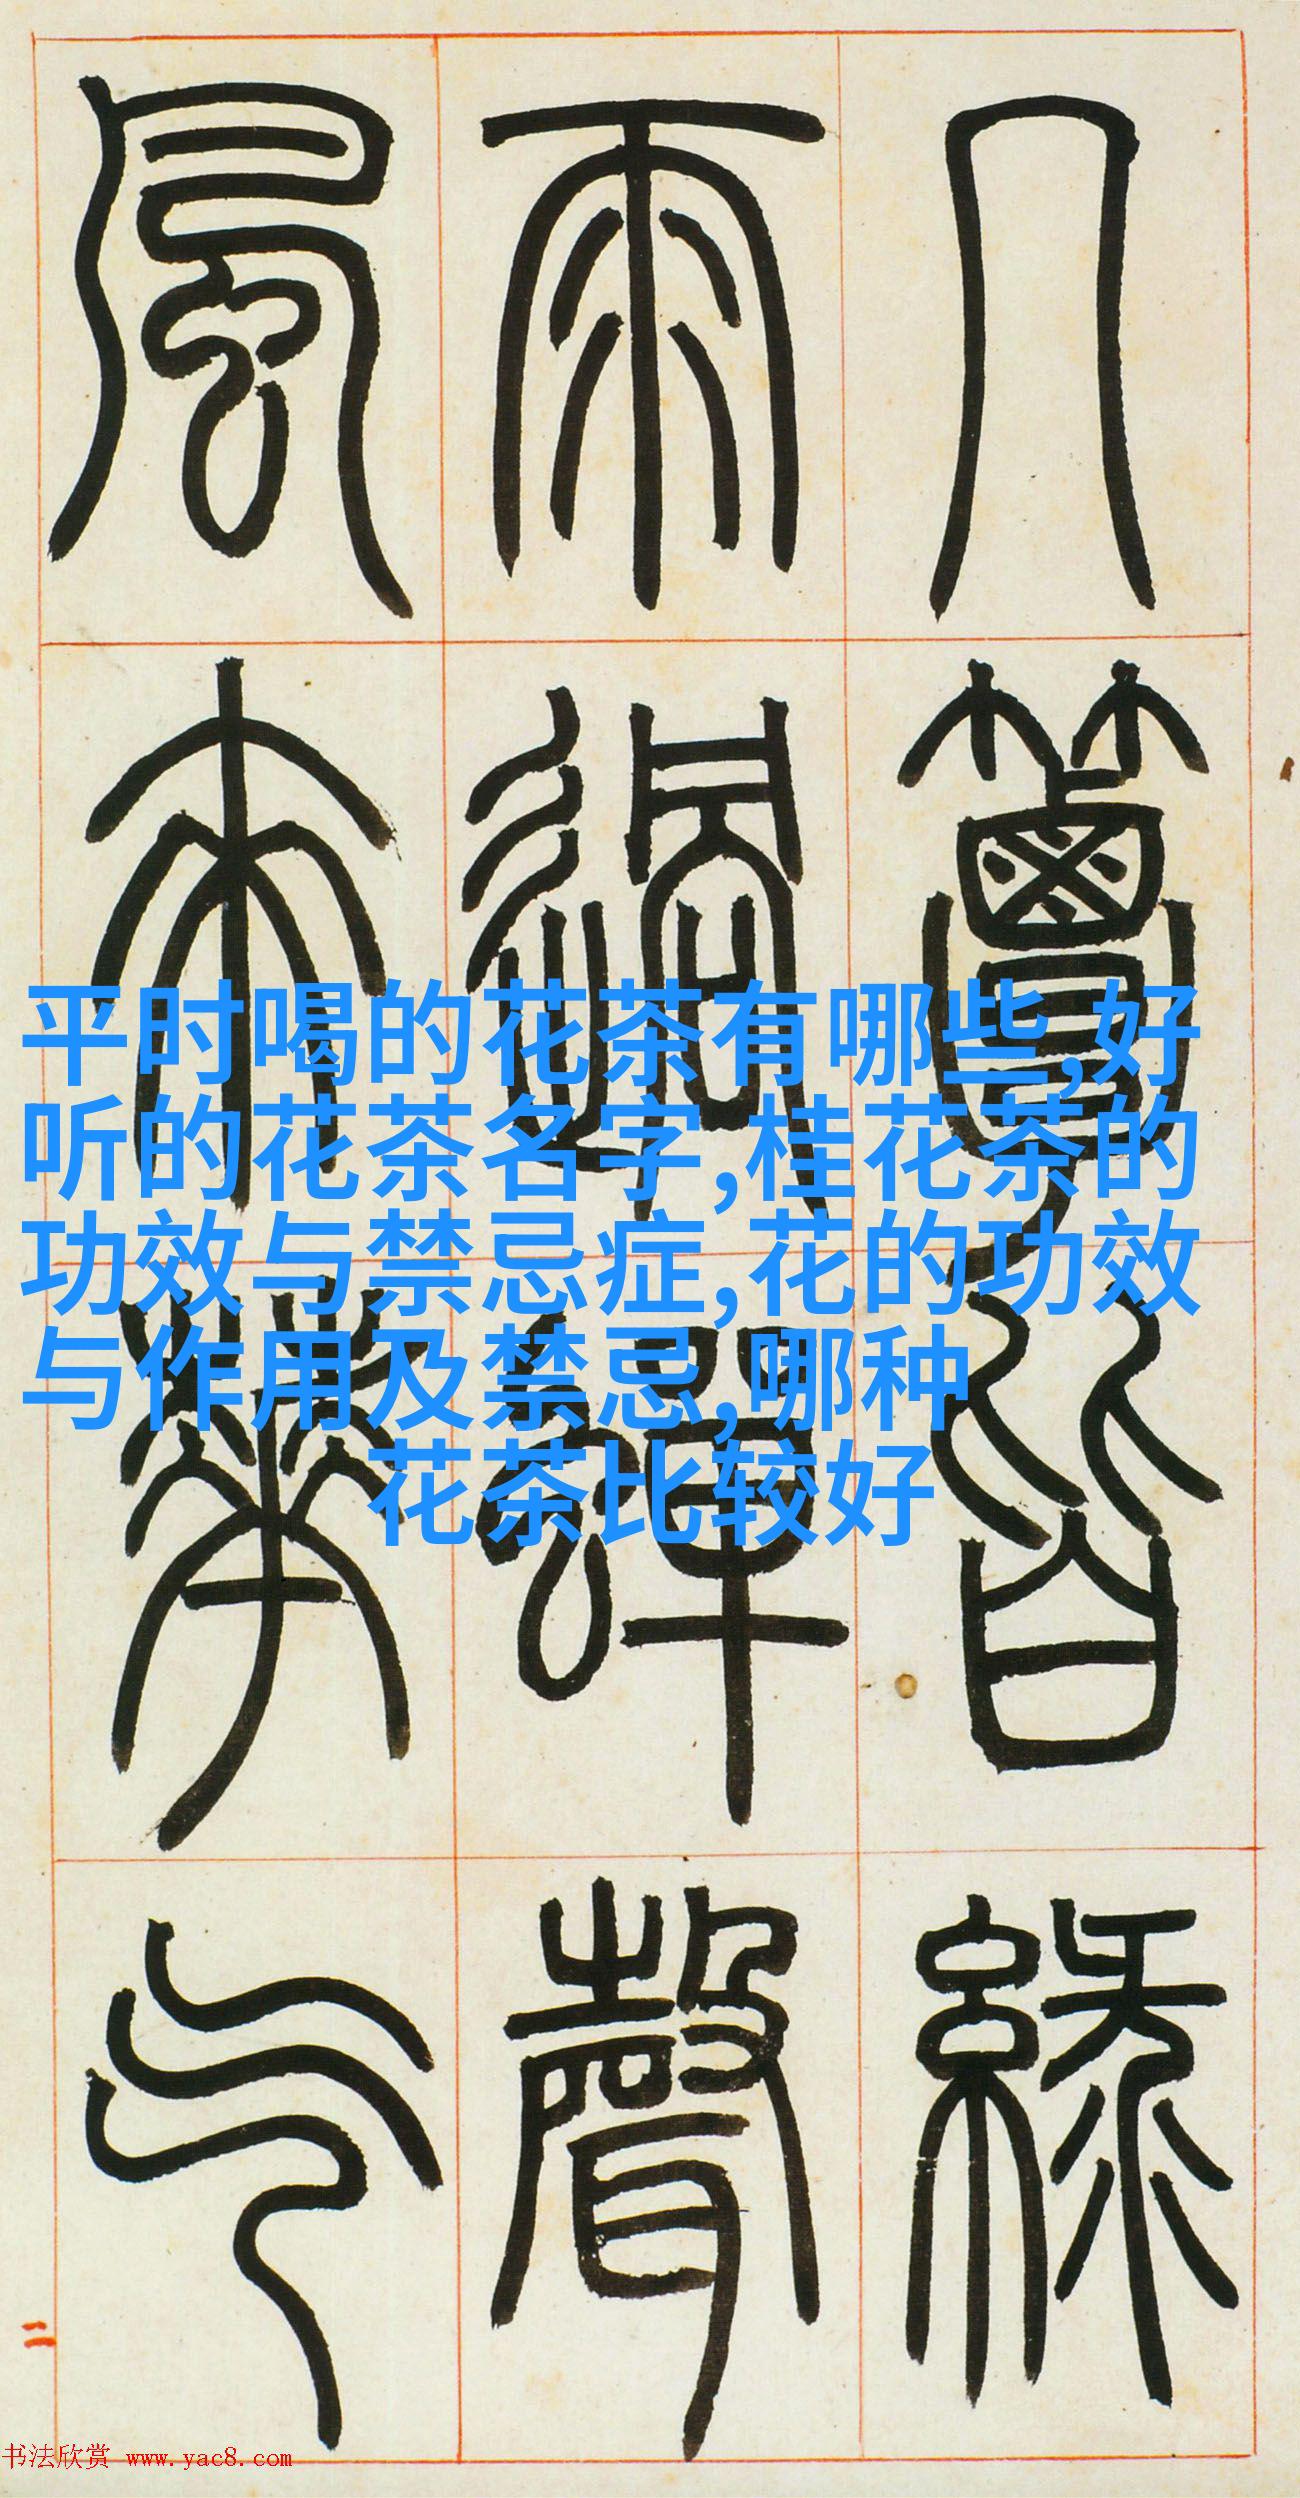 几簟皆綠
雨過蟬聲
風來華气
平时喝的花茶有哪些,好
听的花茶名字,桂花茶的
功效与禁忌症,花的功效
与作用及禁忌,哪种
花茶比较好
二
书法欣赏 www.yac8.com